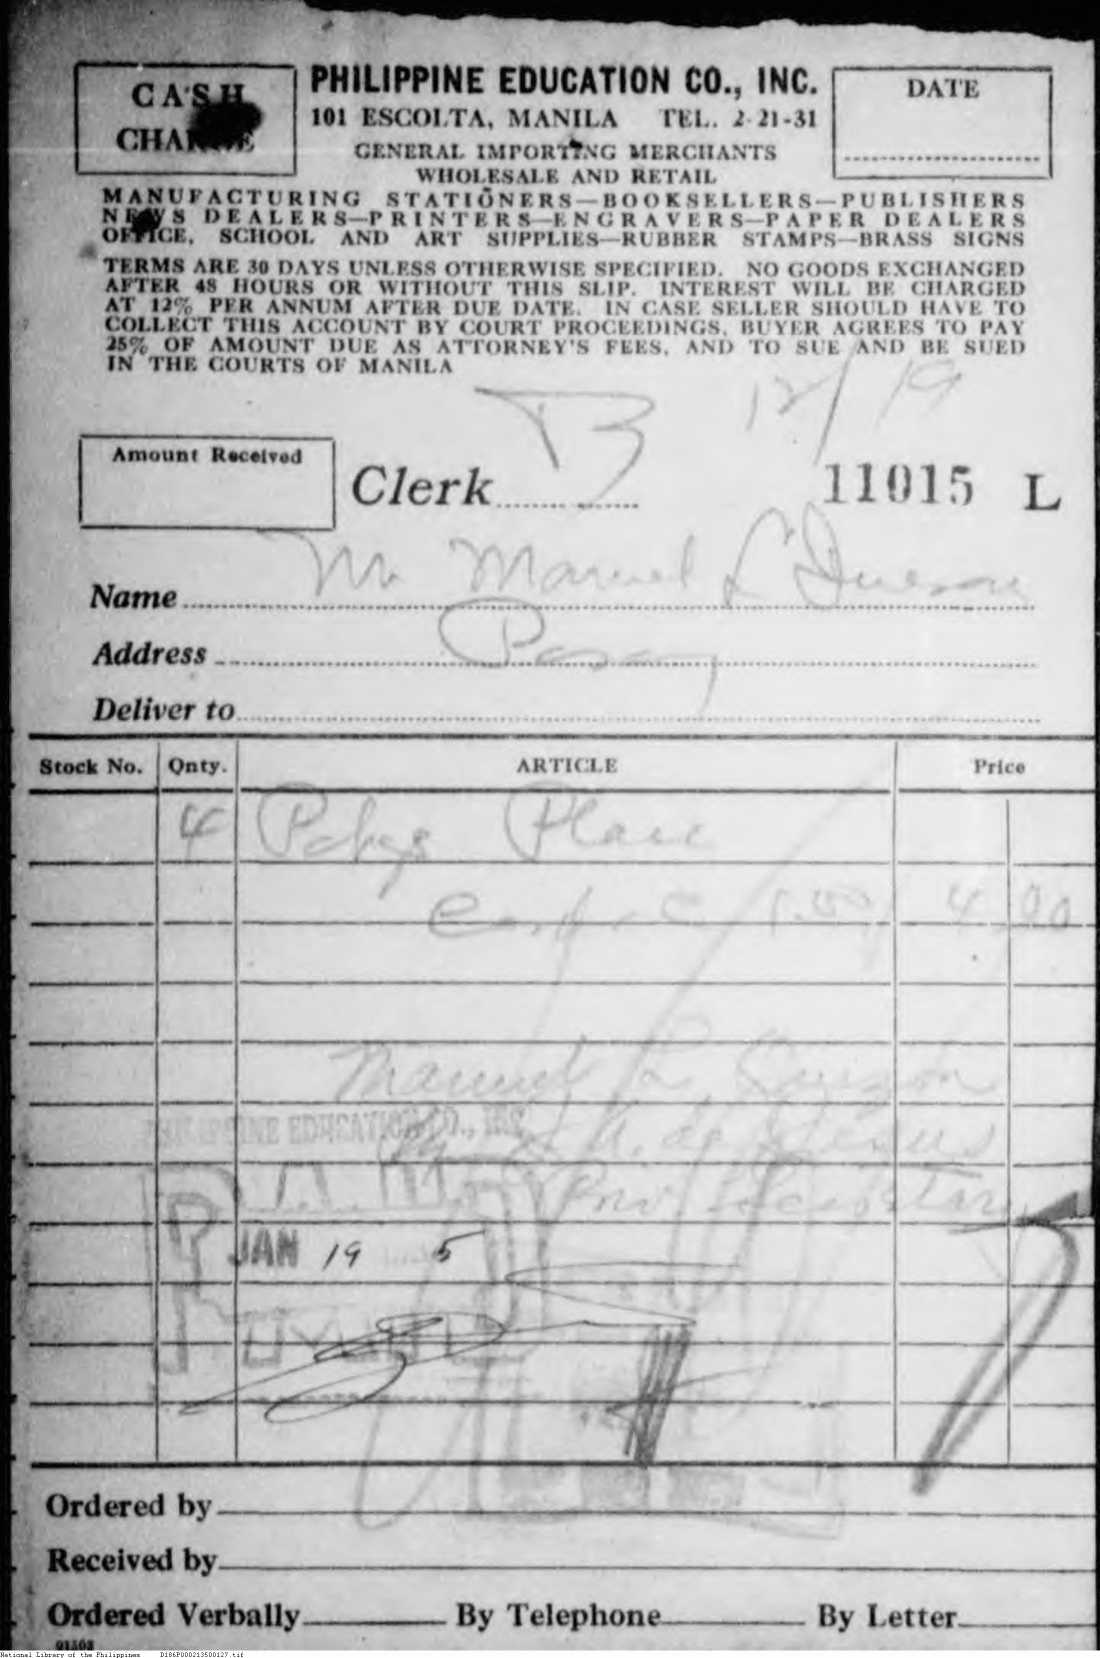 CASH
CHARGE
PHILIPPINE EDUCATION CO., INC.
101 ESCOLTA, MANILA TEL. 2-21-31
GENERAL IMPORTING MERCHANTS
WHOLESALE AND RETAIL
DATE
MANUFACTURING STATIONERS—BOOKSELLERS—PUBLISHERS
NEWS DEALERS—PRINTERS—ENGRAVERS—PAPER DEALERS
OFFICE, SCHOOL AND ART SUPPLIES—RUBBER STAMPS—BRASS SIGNS
TERMS ARE 30 DAYS UNLESS OTHERWISE SPECIFIED. NO GOODS EXCHANGED
AFTER 48 HOURS OR WITHOUT THIS SLIP. INTEREST WILL BE CHARGED
AT 12% PER ANNUM AFTER DUE DATE. IN CASE SELLER SHOULD HAVE TO
COLLECT THIS ACCOUNT BY COURT PROCEEDINGS, BUYER AGREES TO PAY
25% OF AMOUNT DUE AS ATTORNEY'S FEES, AND TO SUE AND BE SUED
IN THE COURTS OF MANILA
12/19
Amount Received
Clerk
11015 L
Name Mr Manuel L Quezon
Address Pasay
Deliver to
Stock No. Qnty. ARTICLE Price
4 Pckgs Place
Cards 1.00 4.00
Manuel L Quezon
A. de Jesus
Priv. Secretary
PHILIPPINE EDUCATION CO., INC.
PAID
JAN 19 5
Ordered by
Received by
Ordered Verbally By Telephone By Letter
01503
National Library of the Philippines D186P000213500127.tif